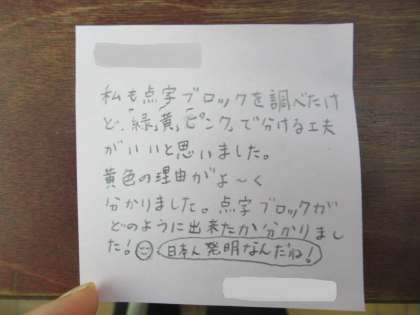 私も点字ブロックを調べたけ
ど、「緑」「黄」「ピンク」で分ける工夫
がいいと思いました。
黄色の理由がよ～く
分かりました。点字ブロックが
どのように出来たか分かりまし
た！日本人発明なんだね！